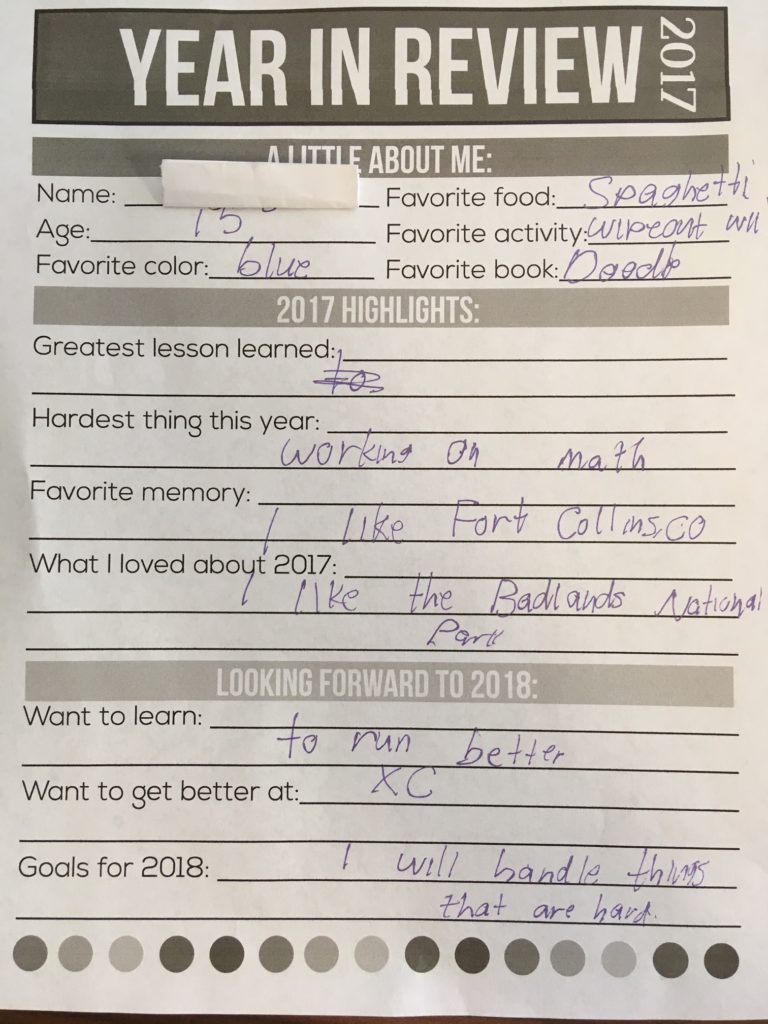 YEAR IN REVIEW 2017
A LITTLE ABOUT ME:
Name: Favorite food: Spaghetti
Age: 15 Favorite activity: wipeout wii
Favorite color: blue Favorite book: Doodle
2017 HIGHLIGHTS:
Greatest lesson learned:
to
Hardest thing this year:
working on math
Favorite memory:
I like Fort Collins, CO
What I loved about 2017:
I like the Badlands National
Park
LOOKING FORWARD TO 2018:
Want to learn:
to run better
Want to get better at: XC
Goals for 2018: I will handle things
that are hard.